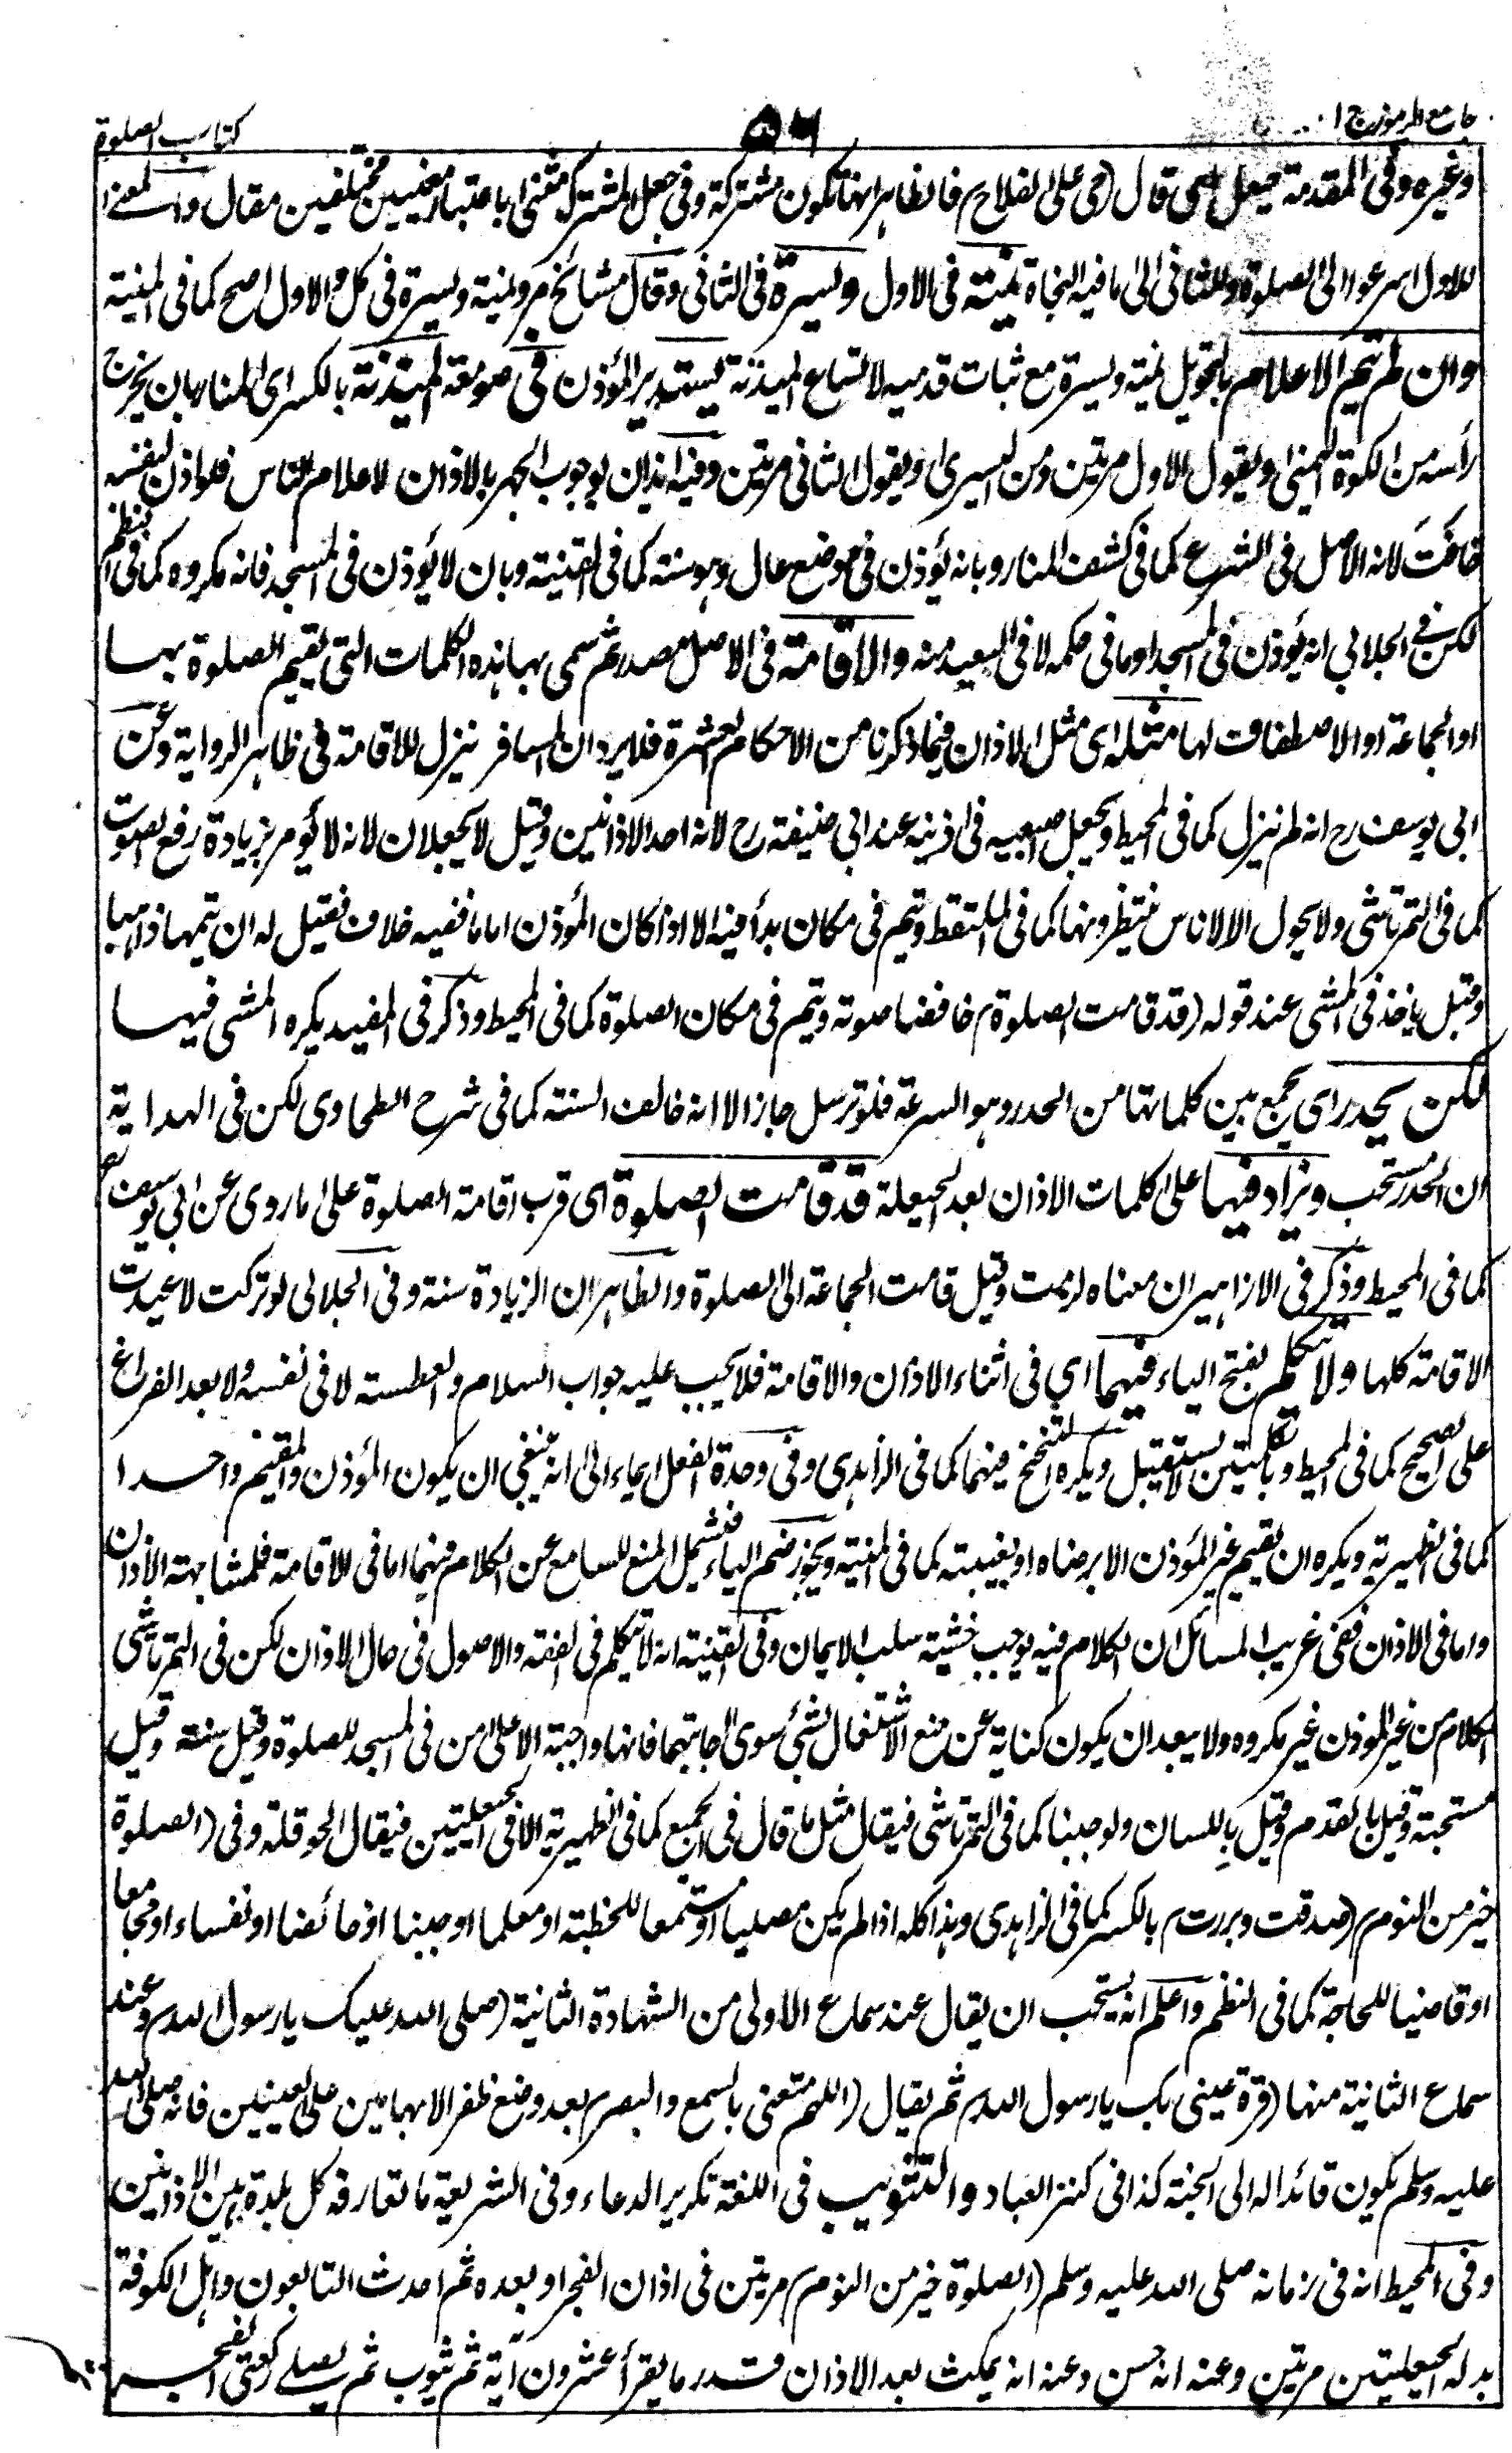 جامع الرموز ج ١
٥٦
كتاب الصلوة
وغيره وفى المقدمة حيعل اى قال (حى على الفلاح) فالظاهر انها تكون مشتركة وفى جعل المشترك مثنى باعتبار معنيين مختلفين مقال والمعنى
للاول اسرعوا الى الصلوة وللثانى الى ما فيه النجاة يمنته فى الاول ويسرة فى الثانى وقال مشائخ مرو يمنية ويسرة فى كل والاول اصح كما فى المنية
وان لم يتم الاعلام بالتحويل يمنة ويسرة مع ثبات قدميه لاتساع الميذنة يستدير المؤذن فى صومعة الميذنة بالكسر اى المنار بان يخرج
رأسه من الكوة اليمنى ويقول الاول مرتين ومن اليسرى ويقول الثانى مرتين وفيه ايذان بوجوب الجهر بالاذان لاعلام الناس فلو اذن لنفسه
خافت لانه الاصل فى الشرع كما فى كشف المنار وبانه يؤذن فى موضع عال وهو سنته كما فى القنية وبان لا يؤذن فى المسجد فانه مكروه كما فى النظم
لكن فى الجلابى انه يؤذن فى المسجد او ما فى حكمه لا فى البعيد منه والاقامة فى الاصل مصدر ثم سمى بها هذه الكلمات التى تقيم الصلوة بها
او الجماعة او الاصطفاف لها مثله اى مثل الاذان فيما ذكرنا من الاحكام العشرة فلا يرد ان المسافر ينزل للاقامة فى ظاهر الرواية وعن
ابى يوسف رح انه لم ينزل كما فى المحيط ويجعل اصبعيه فى اذنيه عند ابى حنيفة رح لانه احد الاذانين وقيل لا يجعلان لانه لا يؤمر بزيادة رفع الصوت
كما فى التمرتاشى ولا يحول الا لاناس ينتظرونها كما فى الملتقط ويتم فى مكان بدأ فيه الا اذا كان المؤذن اماما ففيه خلاف فقيل له ان يتمها ذاهبا
وقيل ياخذ فى المشى عند قوله (قد قامت الصلوة) خافضا صوته ويتم فى مكان الصلوة كما فى المحيط وذكر فى المفيد يكره المشى فيها
لكن يحدر اى يجمع بين كلماتها من الحدر وهو السرعة فلو ترسل جاز الا انه خالف السنته كما فى شرح الطحاوى لكن فى الهداية
ان الحدر مستحب ويزاد فيها على كلمات الاذان بعد الحيعلة قد قامت الصلوة اى قرب اقامة الصلوة على ما روى عن ابى يوسف
كما فى المحيط وذكر فى الازاهير ان معناه لزمت وقيل قامت الجماعة الى الصلوة والظاهر ان الزيادة سنة وفى الجلابى لو تركت لاعيدت
الاقامة كلها ولا يتكلم بفتح الياء فيهما اى فى اثناء الاذان والاقامة فلا يجب عليه جواب السلام والعطسته لا فى نفسه ولا بعد الفراغ
على الصحيح كما فى المحيط وبالكلمتين لا يستقبل ويكره التنحنح فيهما كما فى الزاهدى وفى وحدة الفعل ايماء الى انه ينبغى ان يكون المؤذن والمقيم واحدا
كما فى الظهيرية ويكره ان يقيم غير المؤذن الا برضاه او بغيبته كما فى المنية ويجوز ضم الياء فيشمل المنع للسامع عن الكلام فيهما اما فى الاقامة فلمشابهة الاذان
واما فى الاذان ففى غريب المسائل ان الكلام فيه يوجب خشية سلب الايمان وفى القنية انه لا يتكلم فى الفقه والاصول فى حال الاذان لكن فى التمرتاشى
الكلام من غير المؤذن غير مكروه ولا يبعد ان يكون كناية عن منع الاشتغال بشئ سوى اجابتهما فانها واجبة الا على من فى المسجد للصلوة وقيل سنته وقيل
مستحبة وقيل بالقدم وقيل باللسان ولو جنبا كما فى التمرتاشى فيقال مثل ما قال فى الجميع كما فى الظهيرية الا فى الحيعلتين فيقال الحوقلة وفى (الصلوة
خير من النوم) (صدقت وبررت) بالكسر كما فى الزاهدى وهذا كله اذا لم يكن مصليا او مستمعا للخطبة او معلما او جنبا او حائضا او نفساء او مجامعا
او قاضيا للحاجة كما فى النظم واعلم انه يستحب ان يقال عند سماع الاولى من الشهادة الثانية (صلى الله عليك يا رسول الله) وعند
سماع الثانية منها (قرة عينى بك يا رسول الله) ثم يقال (اللهم متعنى بالسمع والبصر) بعد وضع ظفر الابهامين على العينين فانه صلى الله
عليه وسلم يكون قائدا له الى الجنة كذا فى كنز العباد والتثويب فى اللغة تكرير الدعاء وفى الشريعة ما تعارفه كل بلدة بين الاذانين
وفى المحيط انه فى زمانه صلى الله عليه وسلم (الصلوة خير من النوم) مرتين فى اذان الفجر او بعده ثم احدث التابعون واهل الكوفة
بدله الحيعلتين مرتين وعنه انه حسن وعنه انه يمكث بعد الاذان قدر ما يقرأ عشرون آية ثم يثوب ثم يصلى ركعتى الفجر